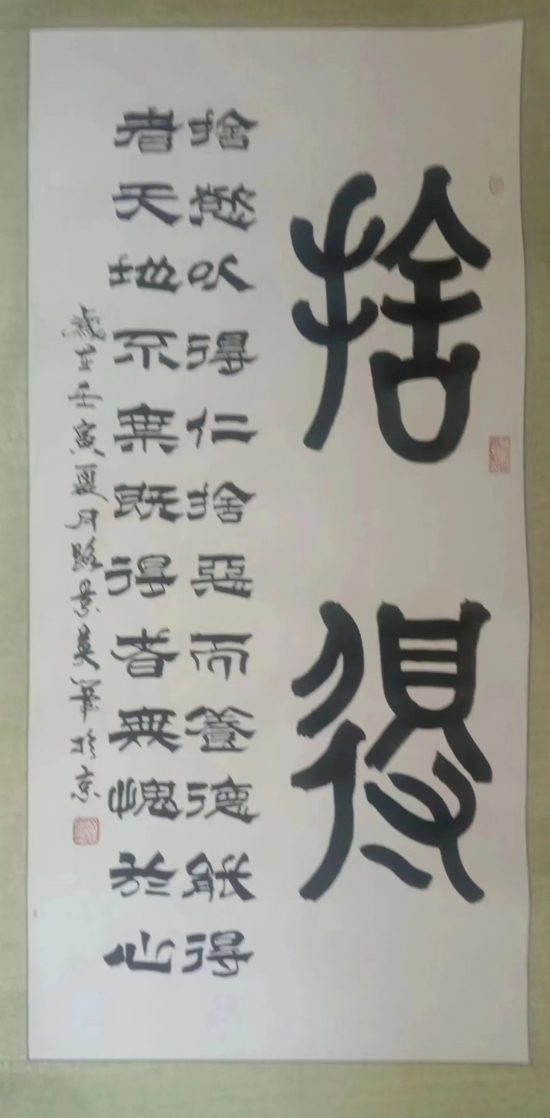 捨得
捨愁以得仁捨惡而養德能得
者天地不棄既得者無愧於心
歲在壬寅夏月路景美筆於京